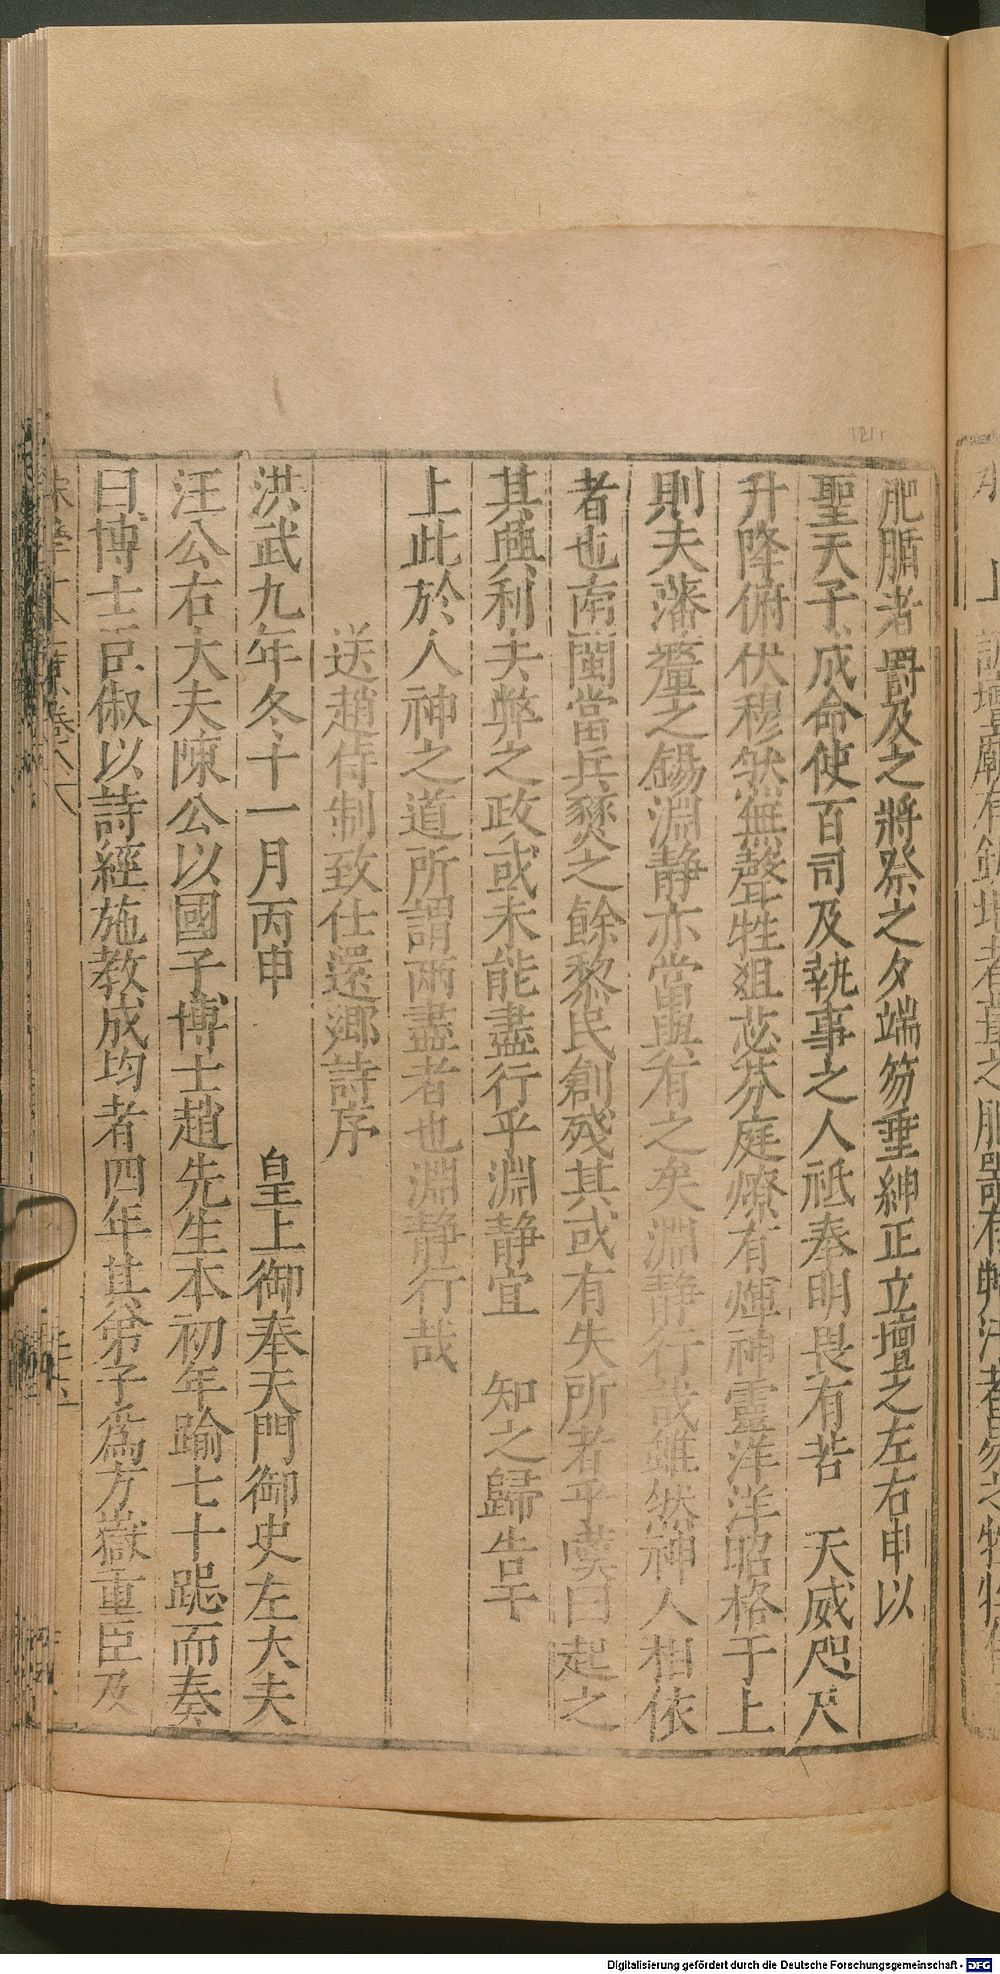 肥腯者爵及之將祭之夕端笏垂紳正立壇之左右申以
聖天子成命使百司及執事之人祗奉明畏有若　天威咫尺
升降俯伏穆然無聲牲俎苾芬庭燎有煇神靈洋洋昭格于上
則夫藩釐之錫淵靜亦當與有之矣淵靜行哉雖然神人相依
者也南閩當兵燹之餘黎民創殘其或有失所者乎嘆曰起之
其興利去弊之政或未能盡行乎淵靜宜　知之歸告于
上此於人神之道所謂兩盡者也淵靜行哉
送趙侍制致仕還鄉詩序
洪武九年冬十一月丙申　皇上御奉天門御史左大夫
汪公右大夫陳公以國子博士趙先生本初年踰七十跽而奏
曰博士臣俶以詩經施教成均者四年其弟子爲方嶽重臣及
Digitalisierung gefördert durch die Deutsche Forschungsgemeinschaft - DFG